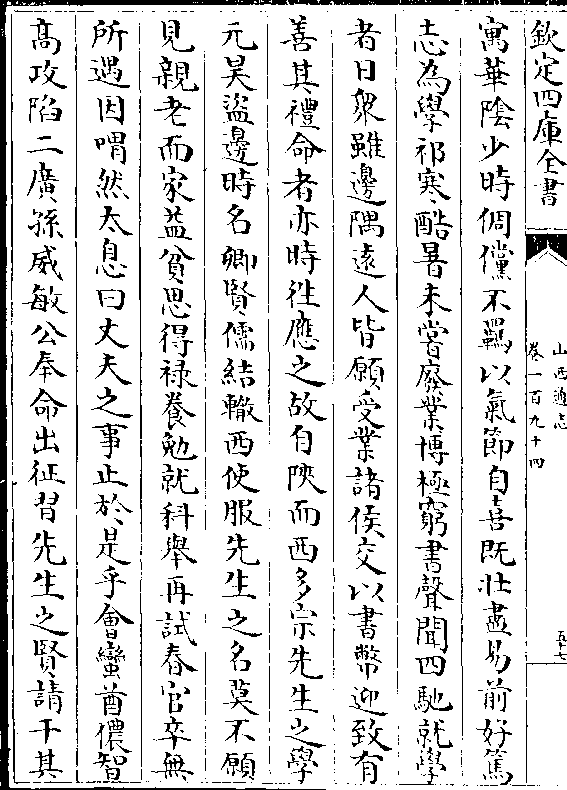 欽定四庫全書
山西通志
卷一百九十四
五十七
寓華隂少時倜儻不羈以氣節自喜既壯盡易前好篤
志為學祁寒酷暑未嘗廢業博極窮書聲聞四馳就學
者日衆雖邊隅逺人皆願受業諸侯交以書幣迎致有
善其禮命者亦時徃應之故自陜而西多宗先生之學
元昊盜邊時名卿賢儒結轍西使服先生之名莫不願
見親老而家益貧思得禄養勉就科舉再試春官卒無
所遇因喟然太息曰丈夫之事止於是乎㑹蠻酋儂智
髙攻陷二廣孫威敏公奉命出征習先生之賢請干其